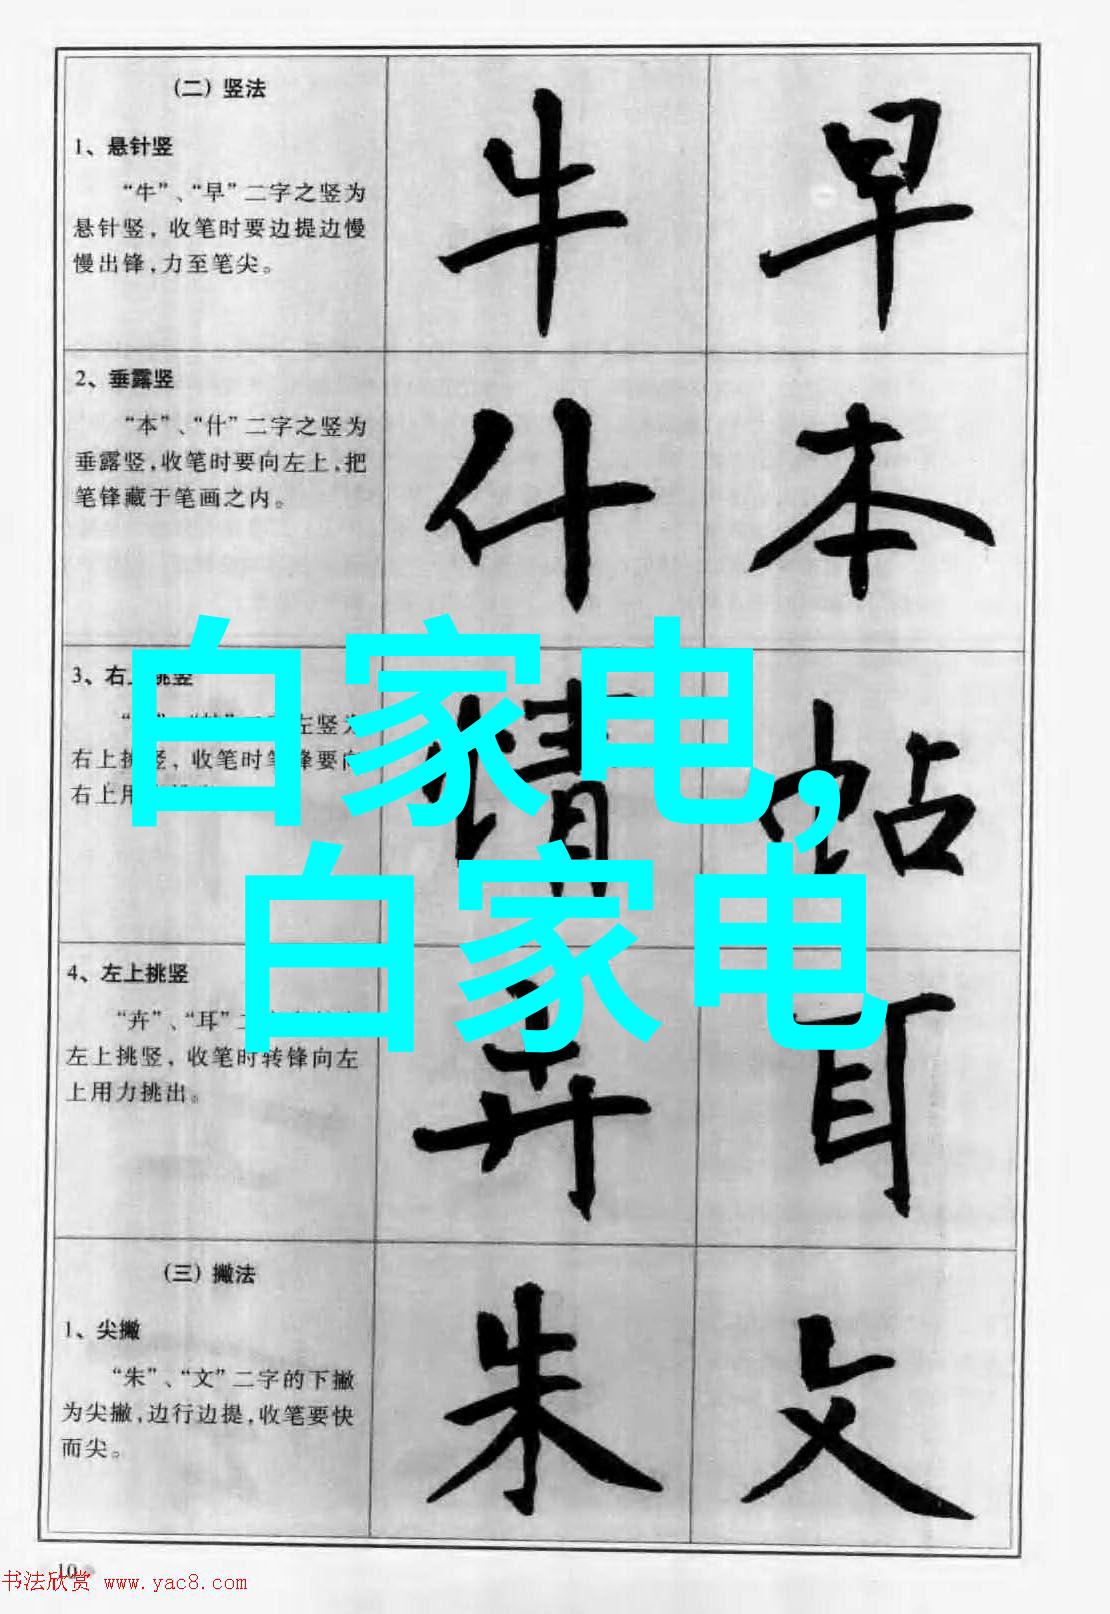 (二) 竖法
1、悬针竖
“牛”、“早”二字之竖为
悬针竖, 收笔时要边提边慢
慢出锋,力至笔尖。
牛 早
2、垂露竖
“本”、“什”二字之竖为
垂露竖,收笔时要向左上,把
笔锋藏于笔画之内。
什 本
3、右上挑竖
左竖为
右上挑竖, 收笔时笔锋要向
右上用
情 帖
白家电,
白家电
4、左上挑竖
“卉”、“耳”二
左上挑竖, 收笔时转锋向左
上用力挑出。
卉 耳
(三) 撇法
1、尖撇
“朱”、“文”二字的下撇
为尖撇,边行边提,收笔要快
而尖。
朱 文
10
书法欣赏 www.yac8.com